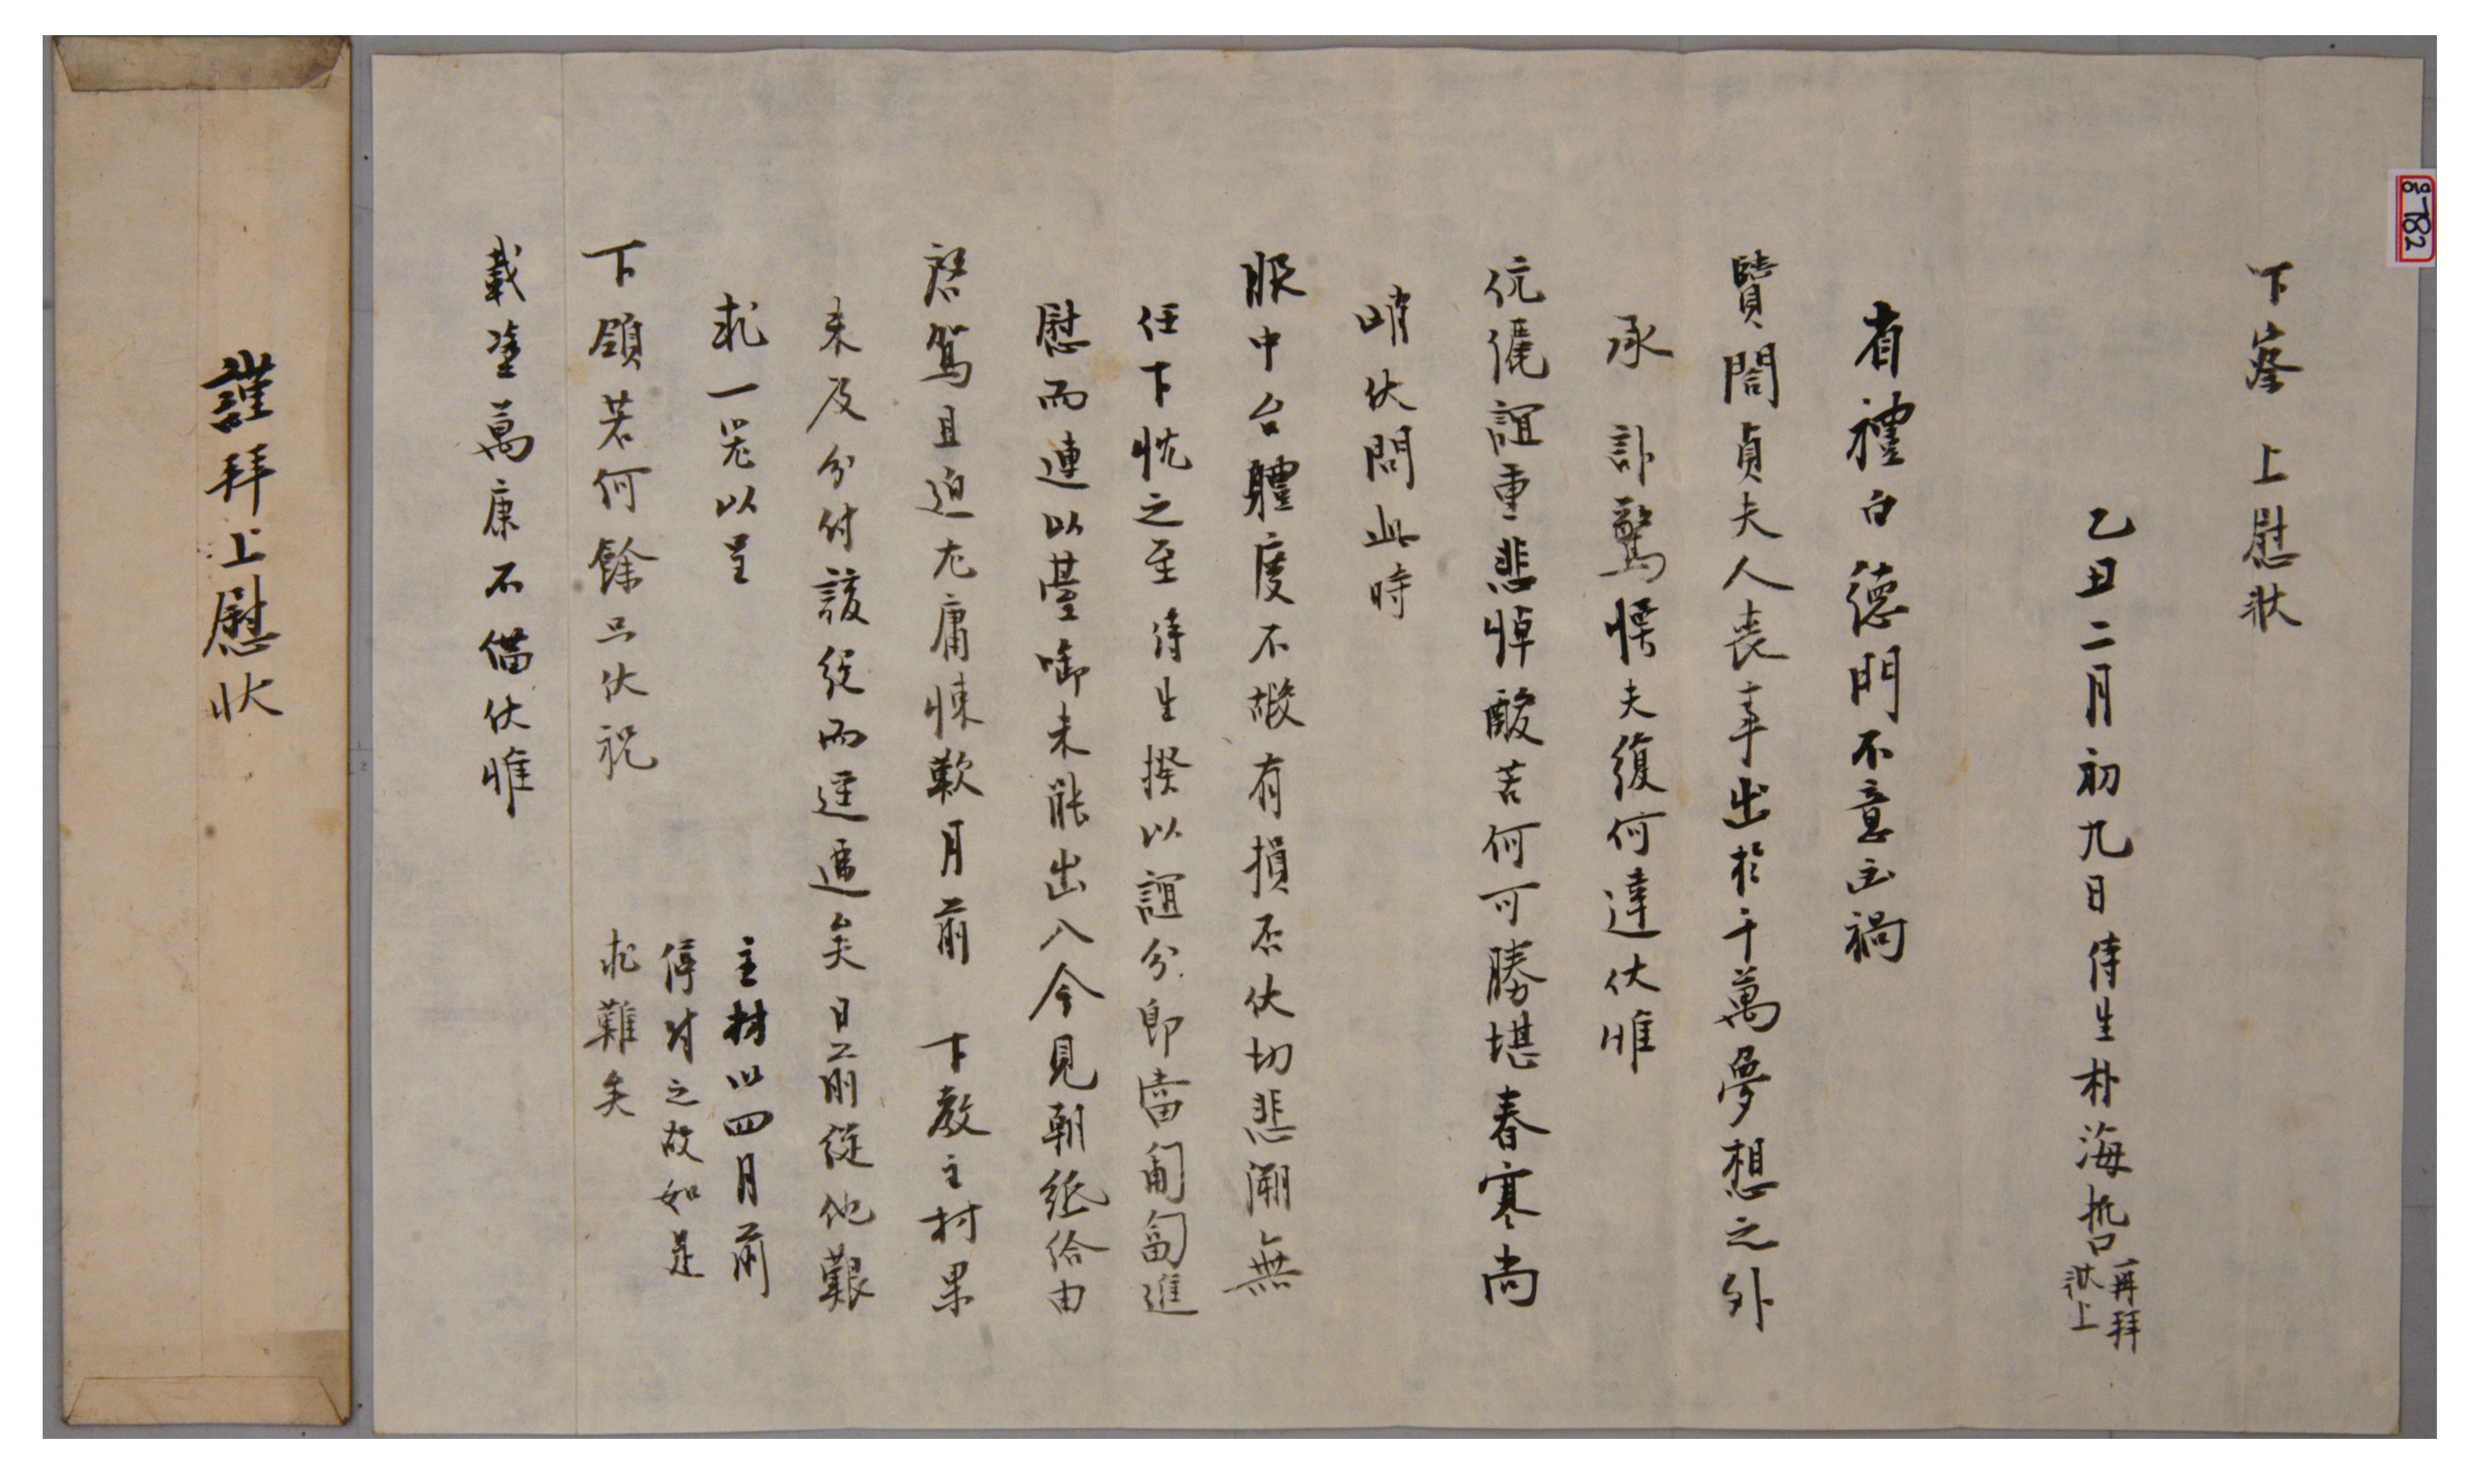 下峯 上慰狀
乙丑二月初九日侍生朴海哲
再拜
狀上
省禮白 德門不意凶禍
賢閤貞夫人喪事出於千萬夢想之外
承 訃驚愕夫復何達伏惟
伉儷誼重悲悼酸苦何可勝堪春寒尚
峭伏問此時
服中台體度不瑕有損否伏切悲溯無
任下忱之至 侍生揆以誼分卽當匍匐進
慰而連以臺啣未能出入今見朝紙給由
啓駕且迫尤庸悚歎月前 下敎主材果
未及分付該 而遷 矣日前從他艱
求一 以呈
下領若何餘只伏祝
主材以四月前
停 之故如是
求難矣
載塗萬康不備伏惟
謹拜上慰狀
782